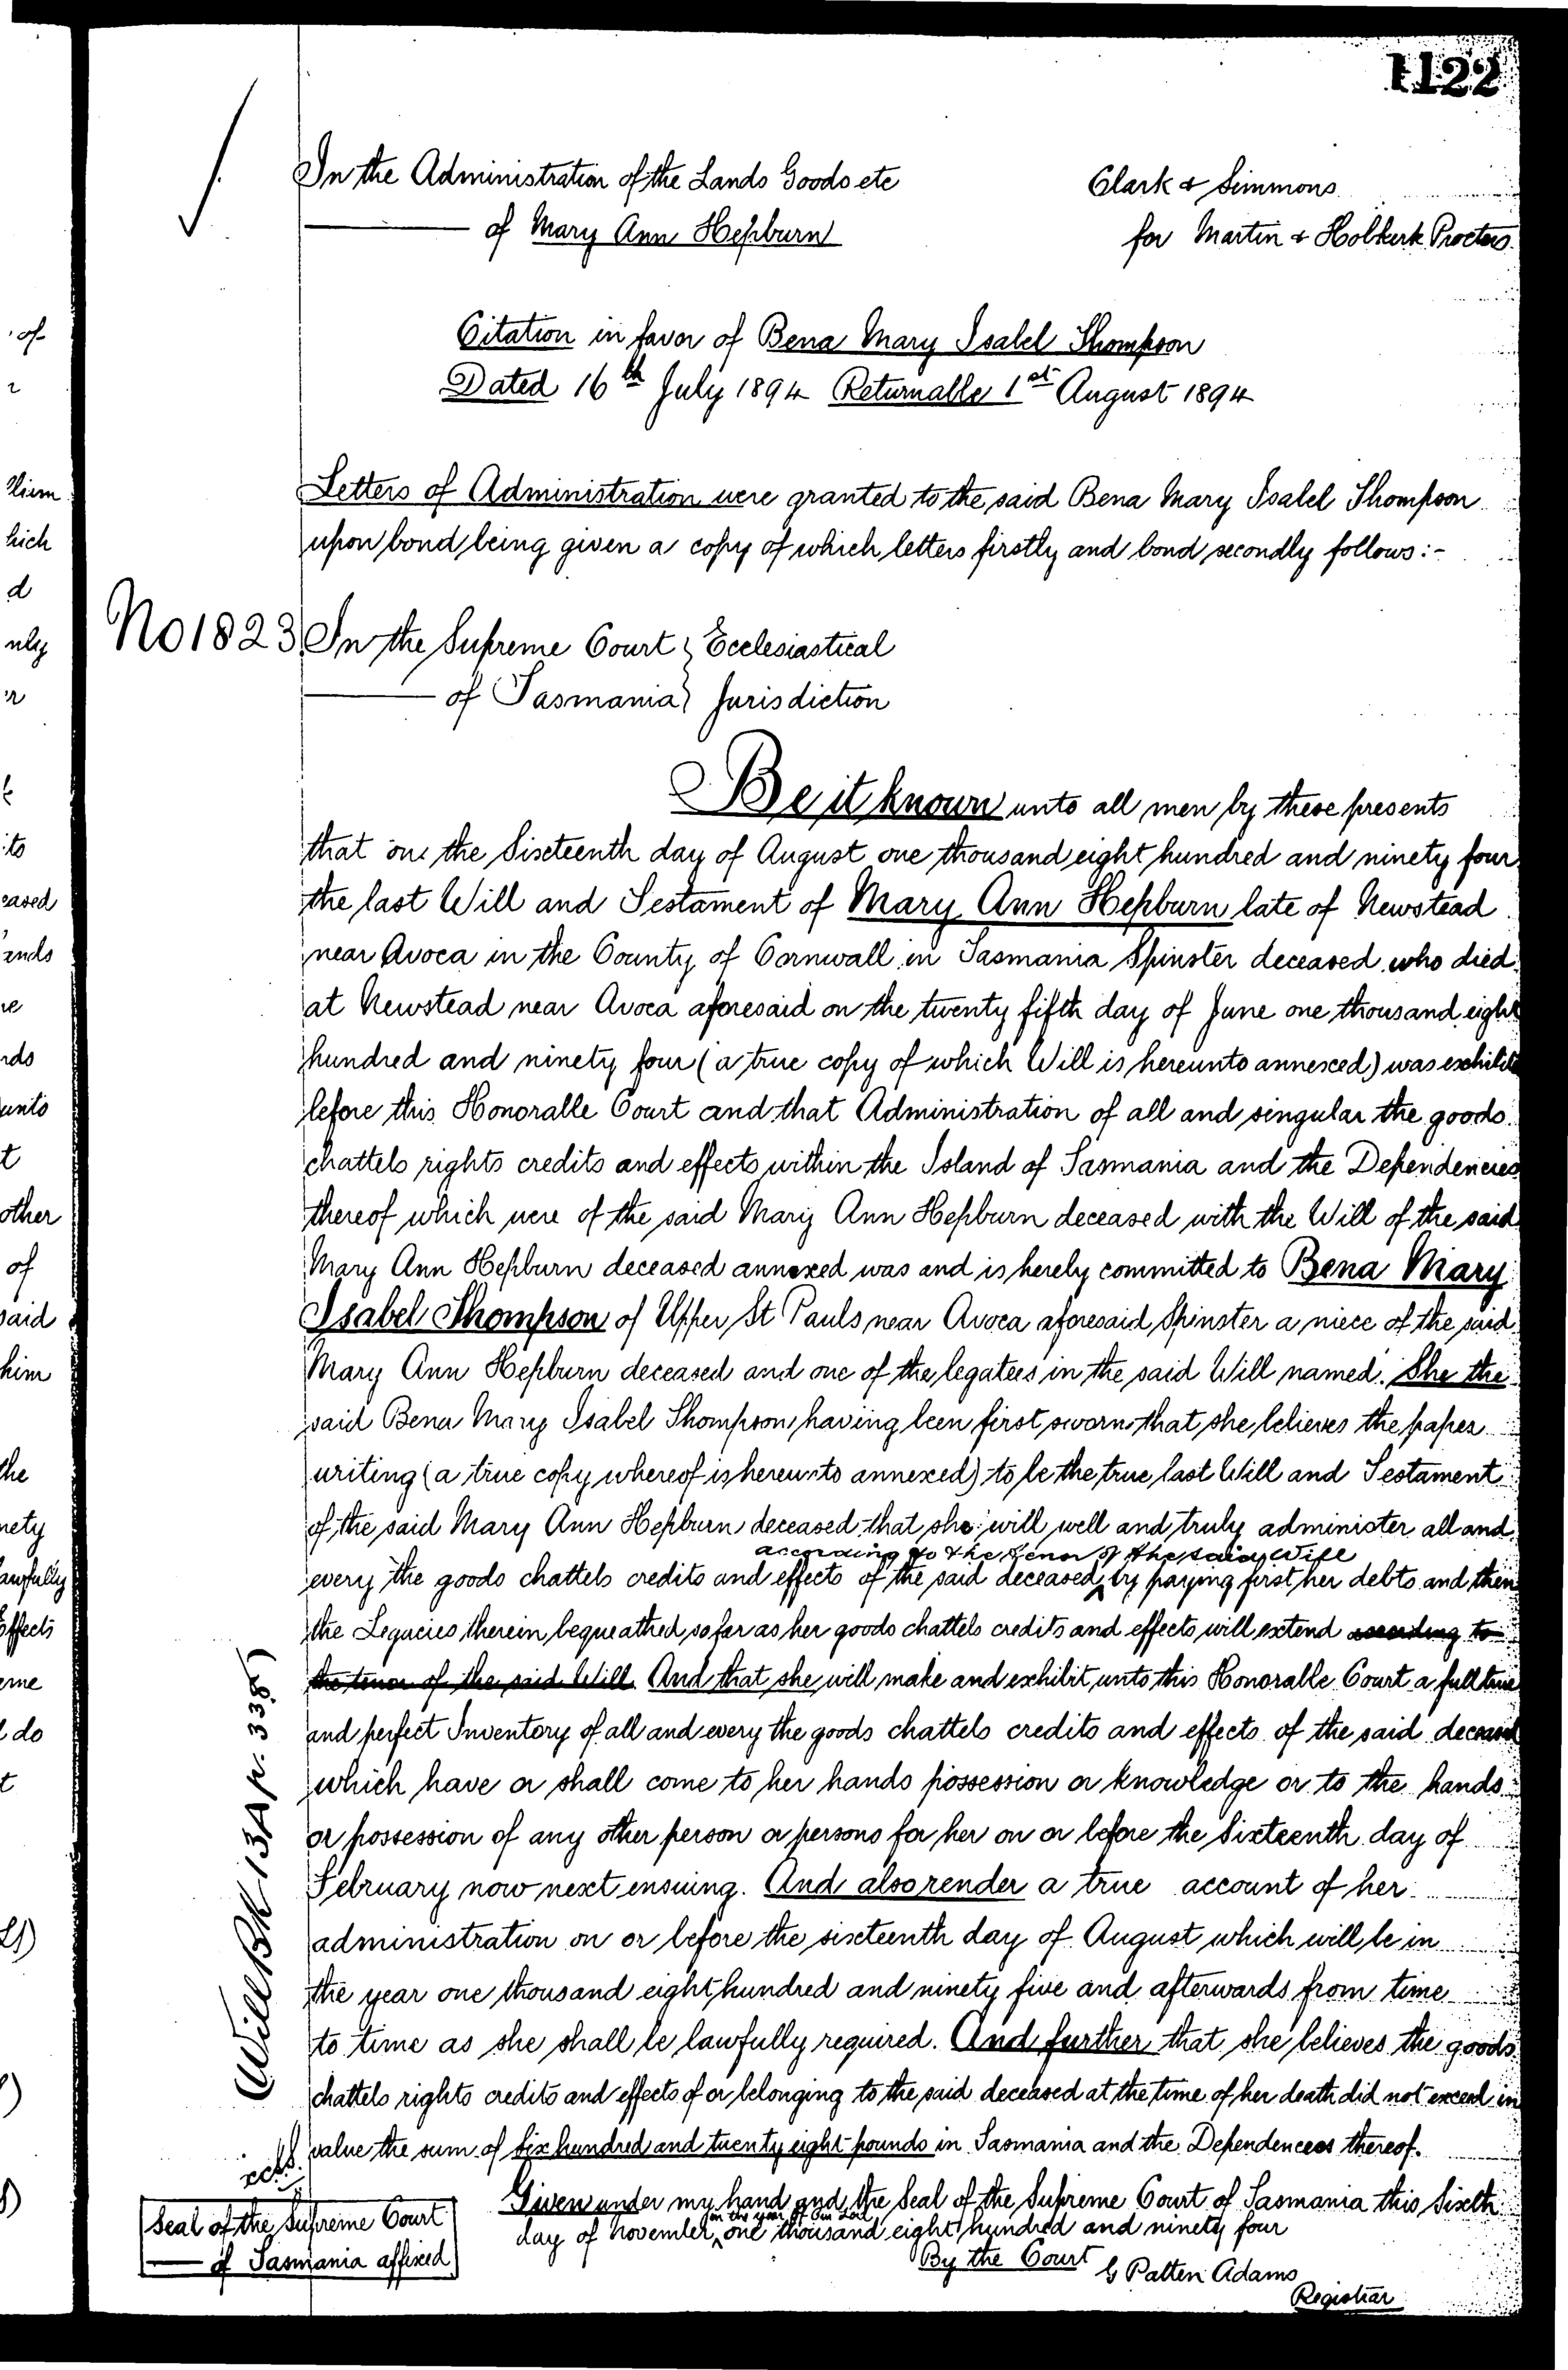 1122
In the Administration of the Lands Goods etc
of Mary Ann Hepburn
Clark & Simmons
for Martin & Hobkirk Proctors
Citation in favor of Bena Mary Isabel Thompson
Dated 16th July 1894 Returnable 1st August 1894
Letters of Administration were granted to the said Bena Mary Isabel Thompson
upon bond being given a copy of which letters firstly and bond secondly follows:-
No 1823 In the Supreme Court } Ecclesiastical
of Tasmania } Jurisdiction
Be it known unto all men by these presents
that on the Sixteenth day of August one thousand eight hundred and ninety four
the last Will and Testament of Mary Ann Hepburn late of Newstead
near Avoca in the County of Cornwall in Tasmania Spinster deceased who died
at Newstead near Avoca aforesaid on the twenty fifth day of June one thousand eight
hundred and ninety four (a true copy of which Will is hereunto annexed) was exhibited
before this Honorable Court and that Administration of all and singular the goods
chattels rights credits and effects within the Island of Tasmania and the Dependencies
thereof which were of the said Mary Ann Hepburn deceased with the Will of the said
Mary Ann Hepburn deceased annexed was and is hereby committed to Bena Mary
Isabel Thompson of Upper St Pauls near Avoca aforesaid Spinster a niece of the said
Mary Ann Hepburn deceased and one of the legatees in the said Will named. She the
said Bena Mary Isabel Thompson having been first sworn that she believes the paper
writing (a true copy whereof is hereunto annexed) to be the true last Will and Testament
of the said Mary Ann Hepburn deceased that she will well and truly administer all and
according to the tenor of the said Will
every the goods chattels credits and effects of the said deceased by paying first her debts and then
the Legacies therein bequeathed so far as her goods chattels credits and effects will extend according to
the tenor of the said Will. And that she will make and exhibit unto this Honorable Court a full true
and perfect Inventory of all and every the goods chattels credits and effects of the said deceased
which have or shall come to her hands possession or knowledge or to the hands
or possession of any other person or persons for her on or before the Sixteenth day of
February now next ensuing. And also render a true account of her
administration on or before the sixteenth day of August which will be in
the year one thousand eight hundred and ninety five and afterwards from time
to time as she shall be lawfully required. And further that she believes the goods
chattels rights credits and effects of or belonging to the said deceased at the time of her death did not exceed in
value the sum of six hundred and twenty eight pounds in Tasmania and the Dependencies thereof.
Given under my hand and the Seal of the Supreme Court of Tasmania this Sixth
in the year of our Lord
day of November one thousand eight hundred and ninety four
By the Court
G Patten Adams
Registrar
(Will Bk 13A p. 338)
Seal of the Supreme Court
of Tasmania affixed
of
hich
d
nly
to
eased
ands
unto
t
other
of
said
him
the
nety
awfully
effects
do
t